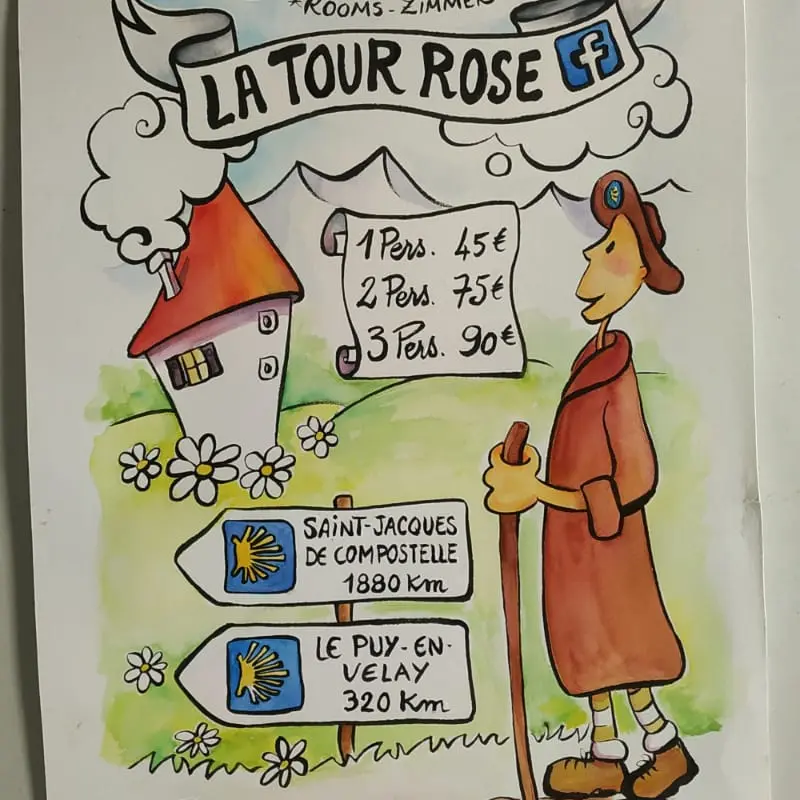 *ROOMS - ZIMMER
LA TOUR ROSE f
1 Pers. 45€
2 Pers. 75€
3 Pers. 90€
SAINT-JACQUES
DE COMPOSTELLE
1880 Km
LE PUY-EN-
VELAY
320 Km